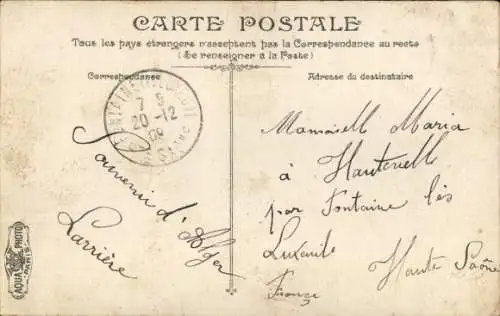 CARTE POSTALE
Tous les pays étrangers n'acceptent pas la Correspondance au recto
(Se renseigner à la Poste)
Correspondance
Adresse du destinataire
7 5
20-12
09
Souvenir d'Alger
Larrière
Mamaiselle Maria
à Hauterelle
par Fontaine lès
Luxeuil
Haute Saône
France
AQUA PHOTO
PARIS